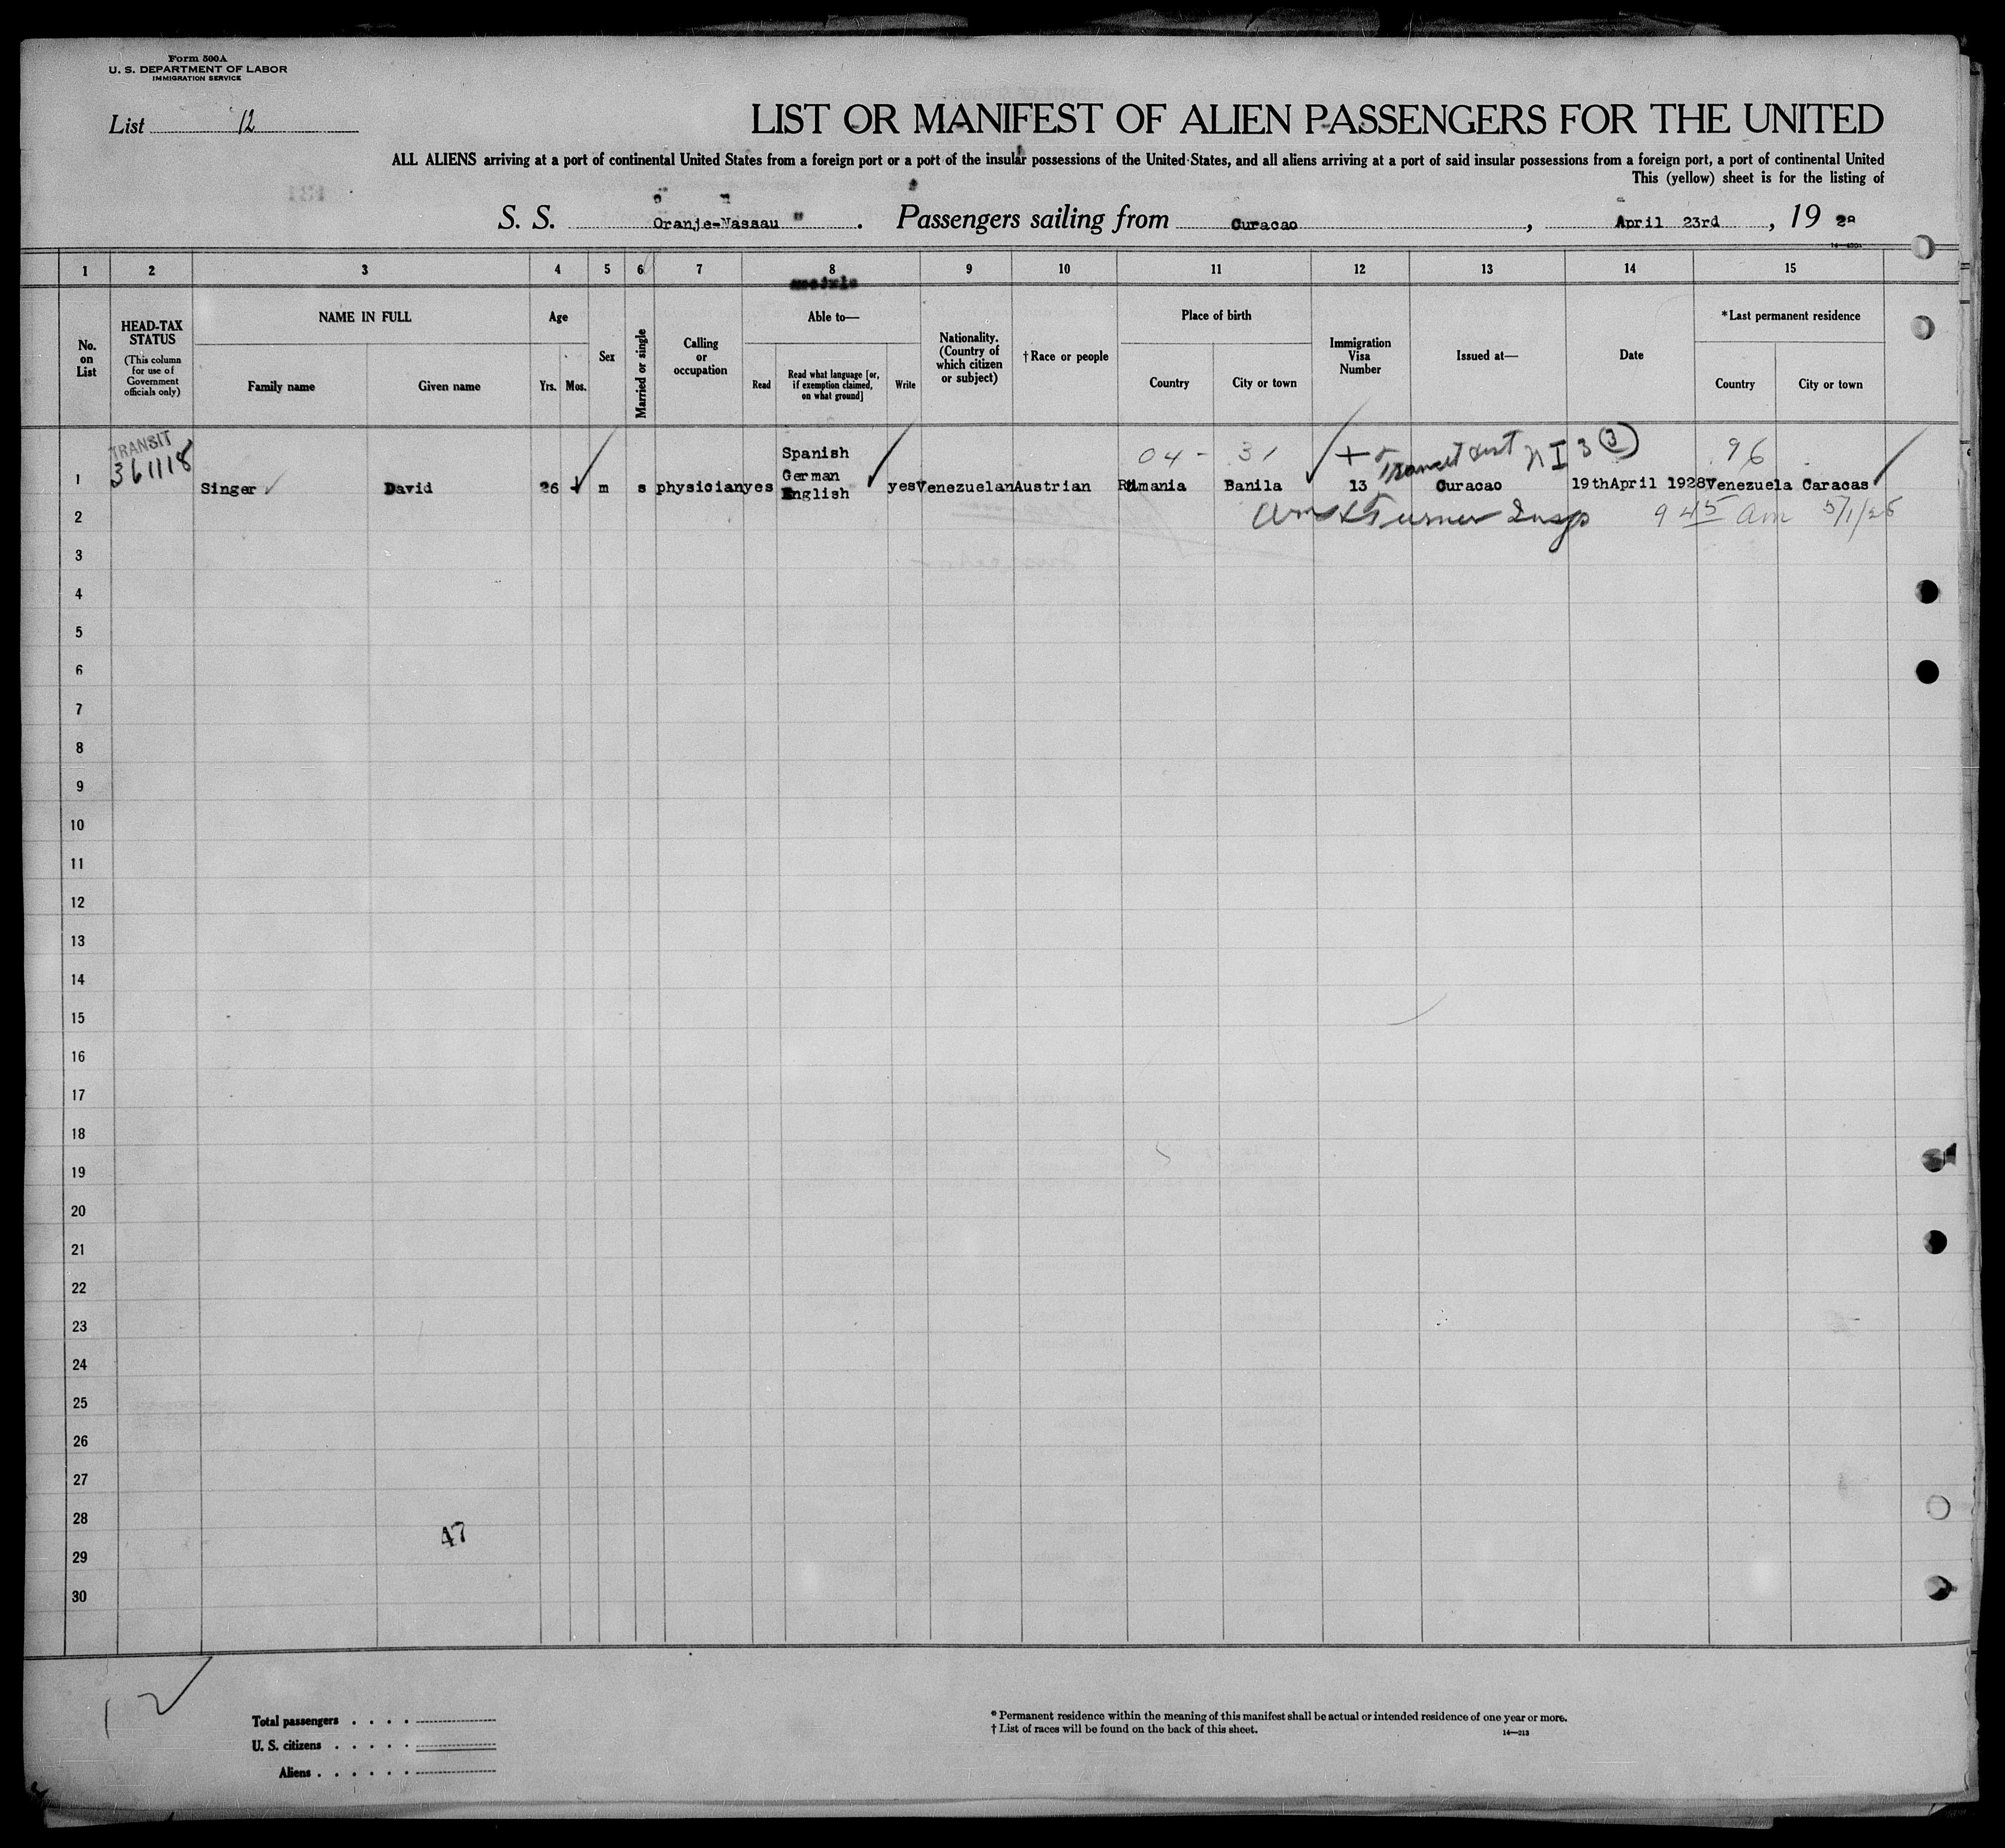 Form 500A
U. S. DEPARTMENT OF LABOR
IMMIGRATION SERVICE
List 12
LIST OR MANIFEST OF ALIEN PASSENGERS FOR THE UNITED
ALL ALIENS arriving at a port of continental United States from a foreign port or a port of the insular possessions of the United States, and all aliens arriving at a port of said insular possessions from a foreign port, a port of continental United
This (yellow) sheet is for the listing of
S. S. Oranje-Nassau " . Passengers sailing from Curacao , April 23rd , 19 28
1 2 3 4 5 6 7 8 9 10 11 12 13 14 15
No. on List
HEAD-TAX STATUS
(This column for use of Government officials only)
NAME IN FULL
Family name Given name
Age
Yrs. Mos.
Sex
Married or single
Calling or occupation
Able to—
Read
Read what language [or, if exemption claimed, on what ground]
Write
Nationality. (Country of which citizen or subject)
†Race or people
Place of birth
Country City or town
Immigration Visa Number
Issued at—
Date
*Last permanent residence
Country City or town
TRANSIT
361118
04 - 31 Transit NI 3 (3) 96
Spanish
German
1 Singer David 26 m s physician yes English yes Venezuelan Austrian Rumania Banila 13 Curacao 19th April 1928 Venezuela Caracas
2 Turner Insp 9 45 am 5/1/28
3
4
5
6
7
8
9
10
11
12
13
14
15
16
17
18
19
20
21
22
23
24
25
26
27
28
47
29
30
12
Total passengers . . . .
U. S. citizens . . . . .
Aliens . . . . . .
* Permanent residence within the meaning of this manifest shall be actual or intended residence of one year or more.
† List of races will be found on the back of this sheet.
14—213